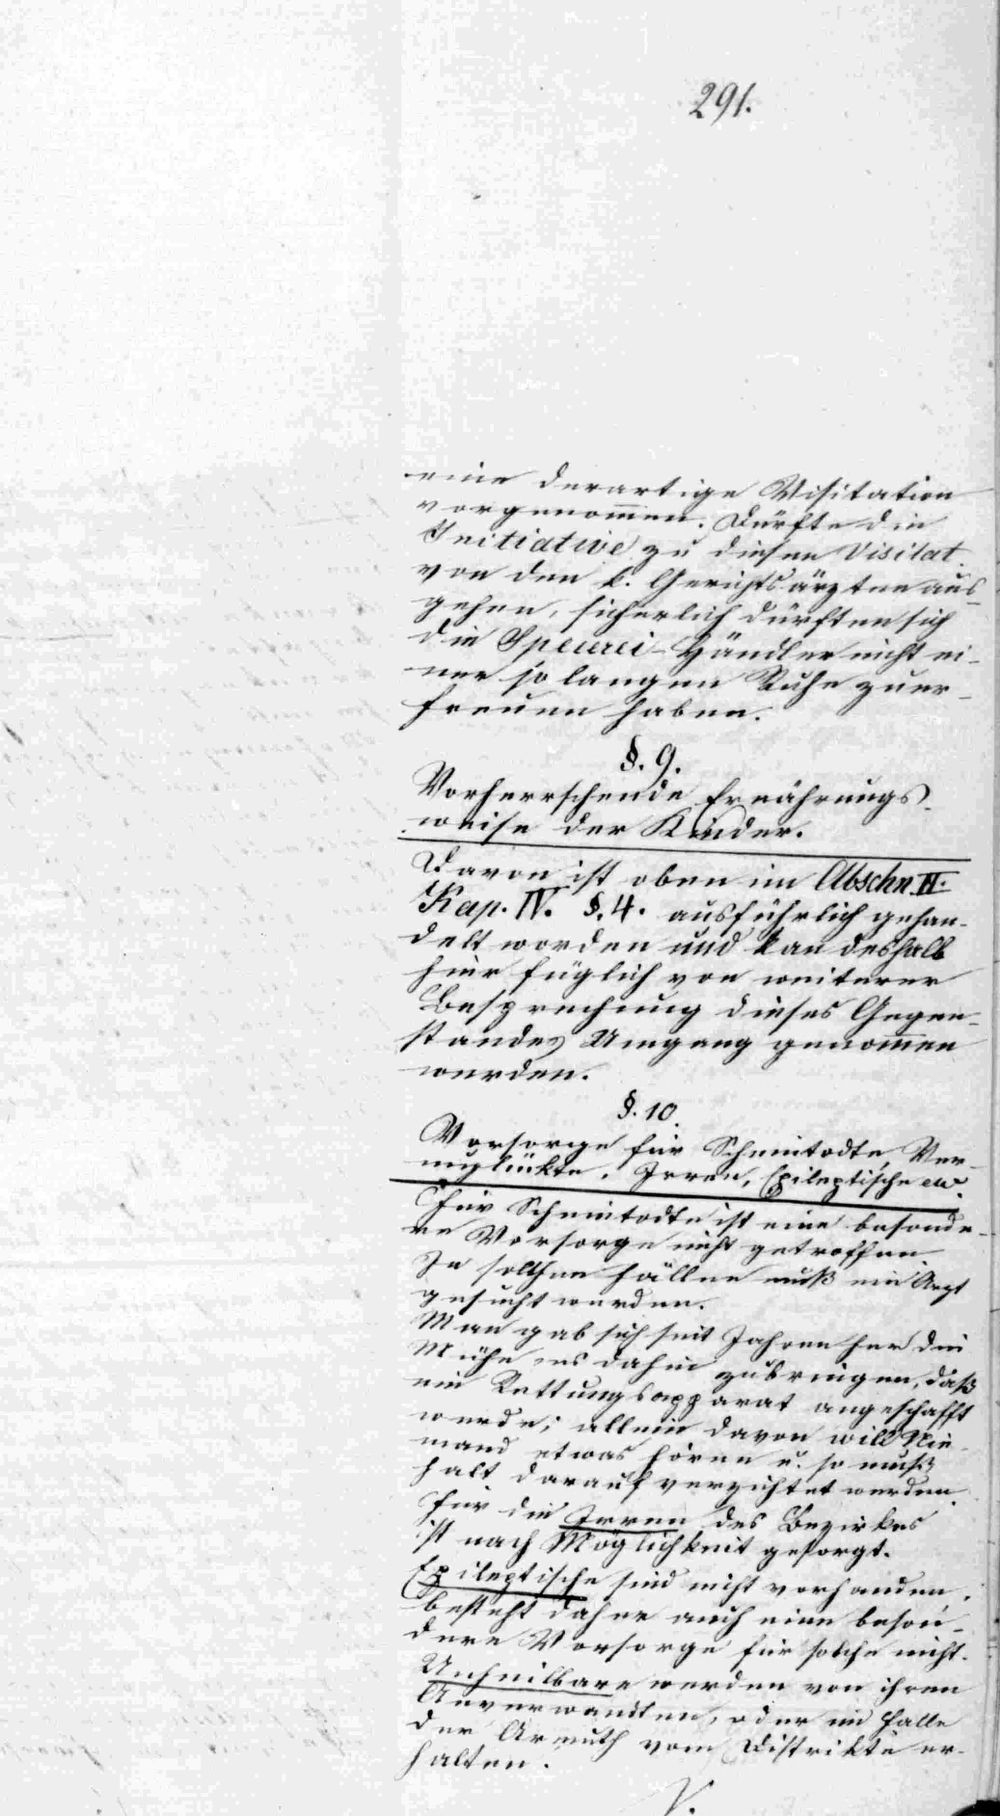 291.
eine derartige Visitation
vorgenommen. Dürfte die
Initiative zu diesen Visitat.
von den k. Gerichtsärzten aus-
gehen, sicherlich dürften sich
die Specerei-Händler nicht ei-
ner so langen Ruhe zu er-
freuen haben.
§. 9.
Vorherrschende Ernährungs-
weise der Kinder.
Davon ist oben im Abschn. II.
Kap. IV. §. 4. ausführlich gehan-
delt worden und kan deshalb
hier füglich von weiterer
Besprechung dieses Gegen-
standes Umgang genommen
werden.
§. 10.
Vorsorge für Scheintodte, Ver-
unglückte, Irren, Epileptische etc.
Für Scheintodte ist eine besonde-
re Vorsorge nicht getroffen.
In solchen Fällen muß ein Arzt
gesucht werden.
Man gab sich seit Jahren her die
Mühe es dahin zu bringen, daß
ein Rettungsapparat angeschafft
werde; allein davon will Nie-
mand etwas hören u. so muß
halt darauf verzichtet werden.
Für die Irren des Bezirkes
ist nach Möglichkeit gesorgt.
Epileptische sind nicht vorhanden,
besteht daher auch eine beson-
dere Vorsorge für solche nicht.
Unheilbare werden von ihren
Anverwandten, oder im Falle
der Armuth vom Distrikte er-
halten.
V.